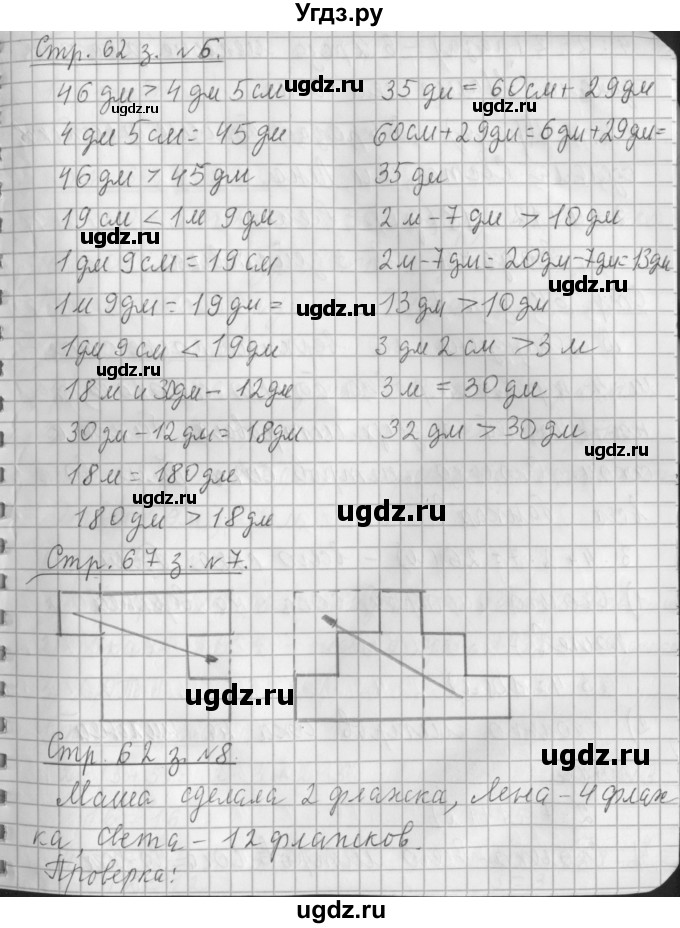 Угдз.ру
Стр. 62 з. №6.
46 дм > 4 дм 5 см
4 дм 5 см = 45 дм
46 дм > 45 дм
19 см < 1 м 9 дм
1 дм 9 см = 19 см
1 м 9 дм = 19 дм =
1 дм 9 см < 19 дм
18 м и 30 дм - 12 дм
30 дм - 12 дм = 18 дм
18 м = 180 дм
180 дм > 18 дм
35 дм = 60 см + 29 дм
60 см + 29 дм = 6 дм + 29 дм =
35 дм
2 м - 7 дм > 10 дм
2 м - 7 дм = 20 дм - 7 дм = 13 дм
13 дм > 10 дм
3 дм 2 см > 3 м
3 м = 30 дм
32 дм > 30 дм
Стр. 67 з. №7.
Стр. 62 з. №8.
Маша сделала 2 флажка, Лена - 4 флаж
ка, Света - 12 флажков.
Проверка:
ugdz.ru
ugdz.ru
ugdz.ru
ugdz.ru
ugdz.ru
ugdz.ru
ugdz.ru
ugdz.ru
ugdz.ru
ugdz.ru
ugdz.ru
ugdz.ru
ugdz.ru